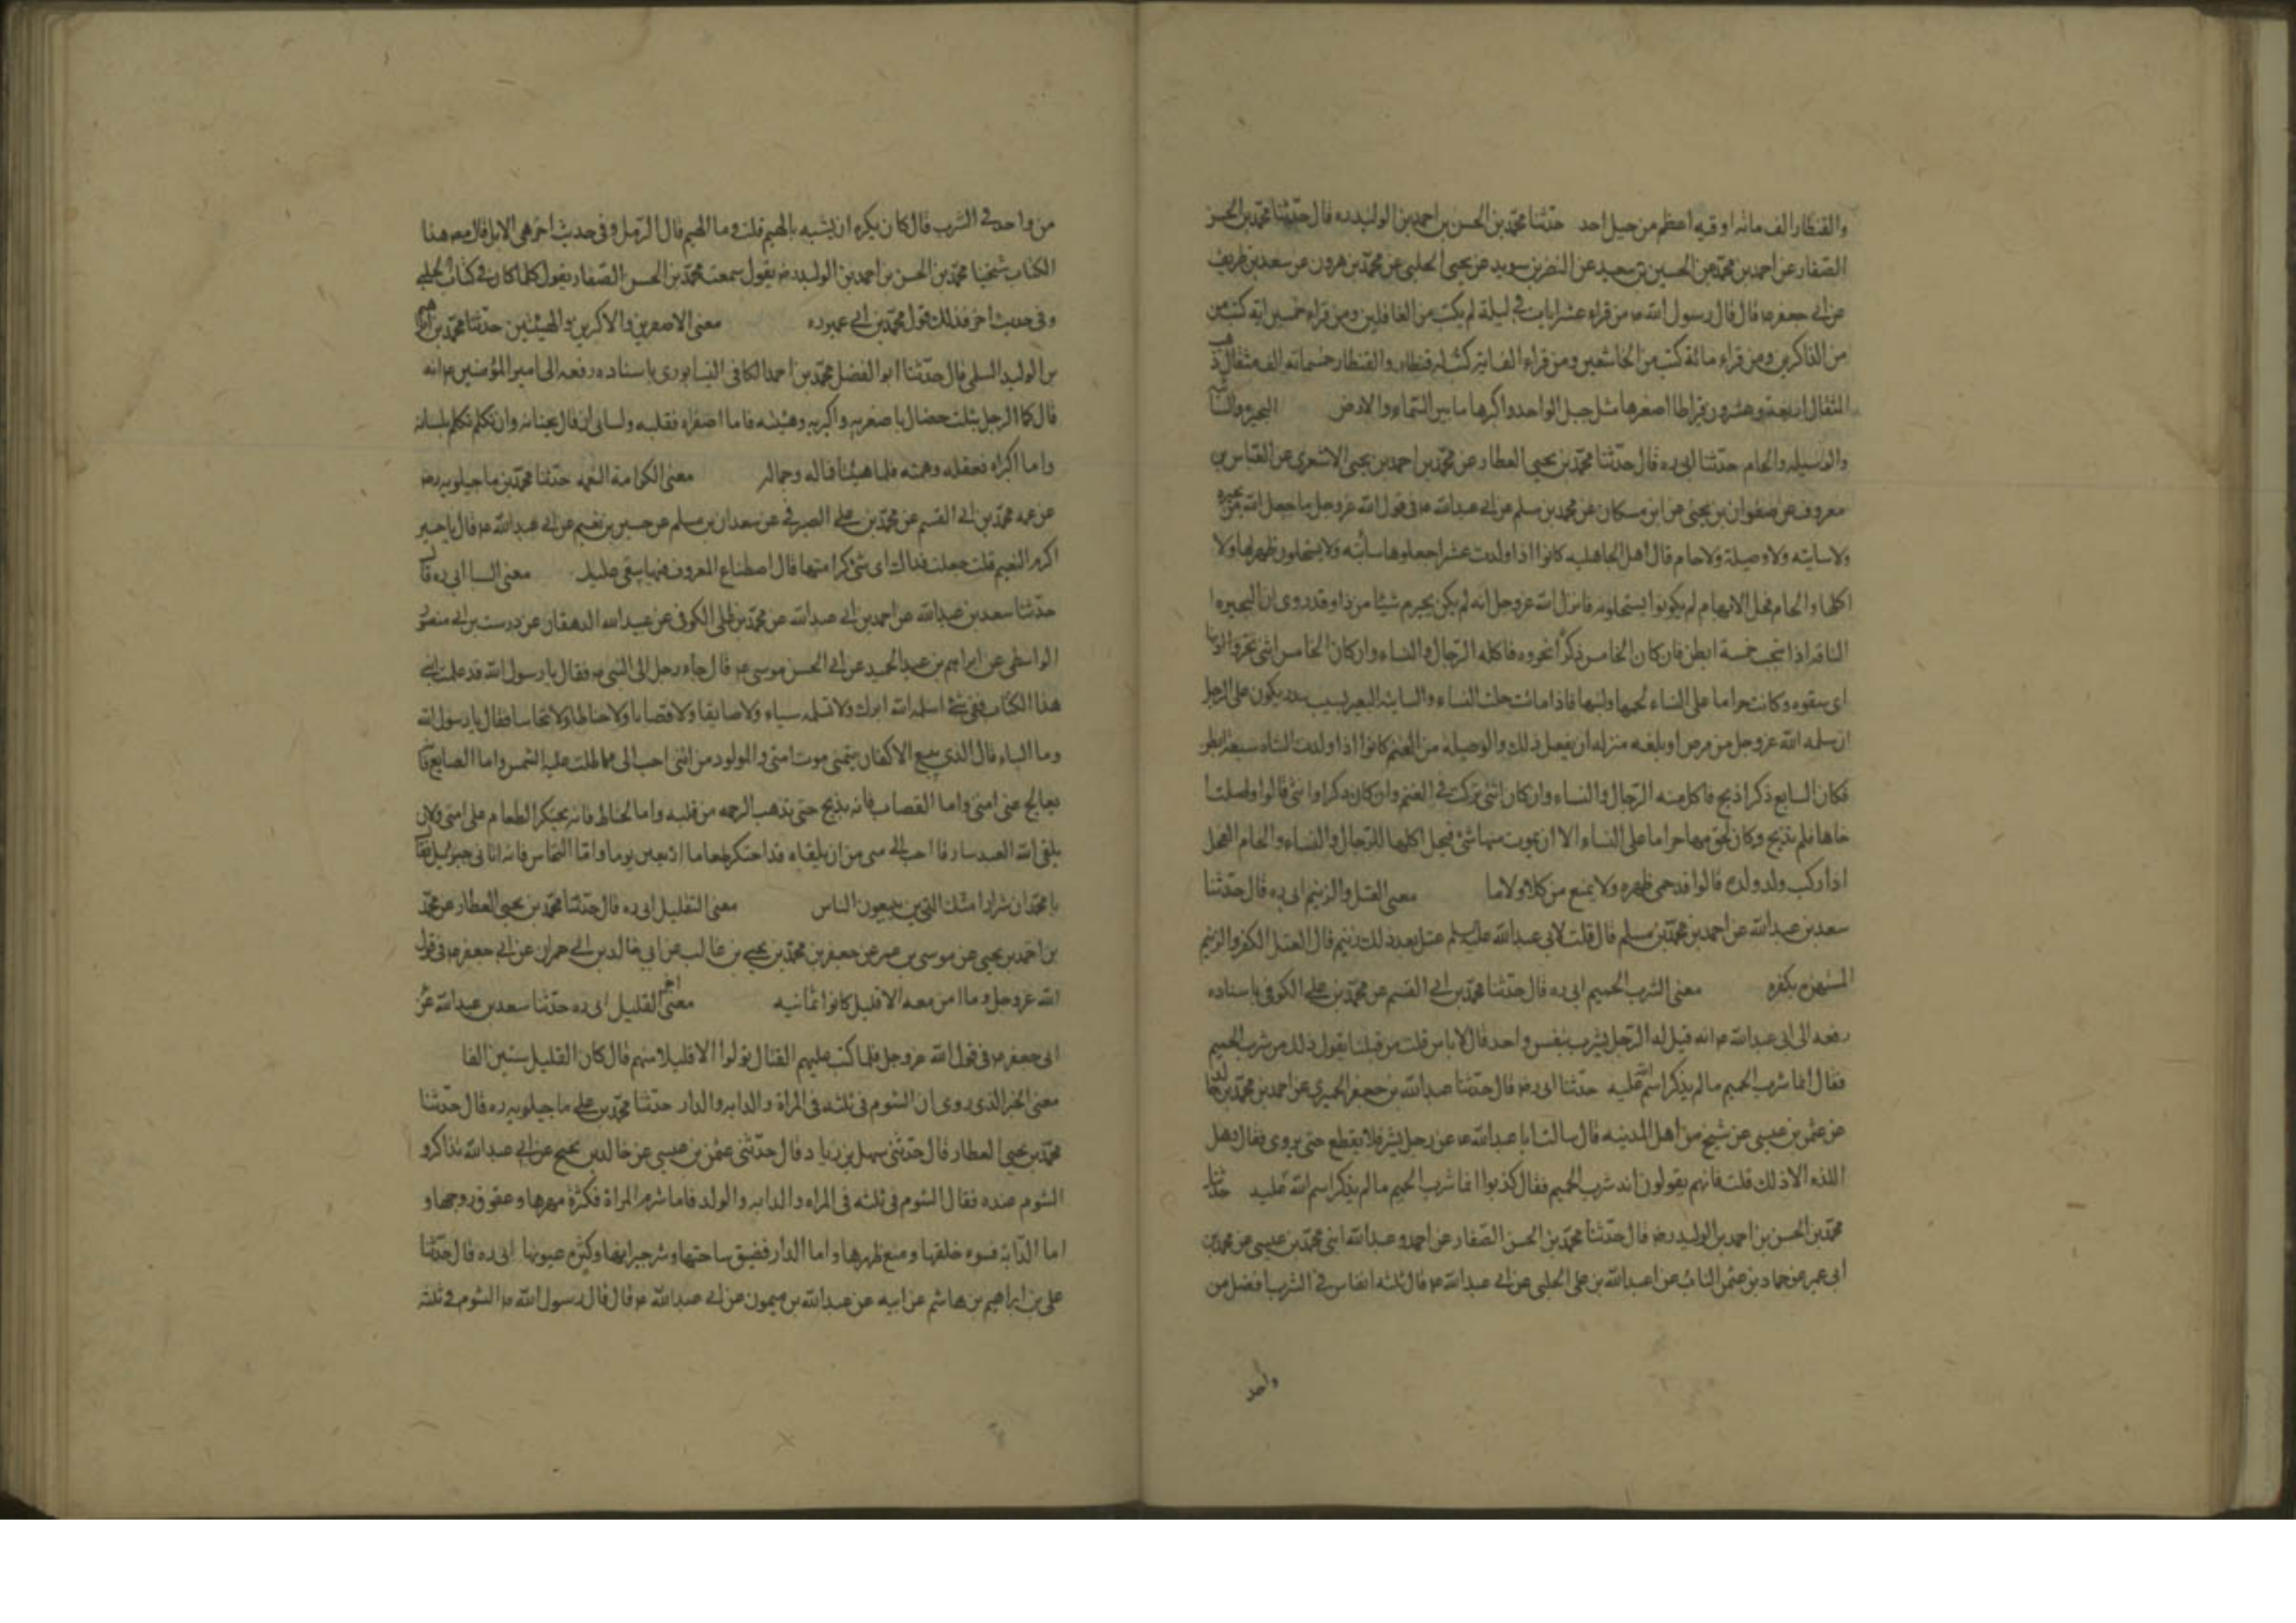 والقنطار الف مائه اوقيه اعظم من جبل احد حدّثنا محمّد بن الحسن بن احمد بن الوليد ره قال حدّثنا محمّد بن الحسن
الصّفار عن احمد بن محمّد عن الحسين بن سعيد عن النضر بن سويد عن يحيى الحلبى عن محمّد بن هرون عن سعد بن طريف
عن ابى جعفر ع قال قال رسول الله ص من قراء عشر ايات فى ليلة لم يكتب من الغافلين ومن قراء خمسين ايه كتب من
من الذاكرين ومن قراء مائة كتب من الخاشعين ومن قراء الف ايه كتب له قنطار والقنطار خمسمائه الف مثقال ذهب
المثقال اربعة وعشرون قيراطا اصغرها مثل جبل الواحد واكبرها ما بين السّماء والارض البحيره والسائبه
والوسيله والحام حدّثنا ابى ره قال حدّثنا محمّد بن يحيى العطار عن محمّد بن احمد بن يحيى الاشعرى عن العبّاس بن
معروف عن صفوان بن يحيى عن ابن مسكان عن محمد بن مسلم عن ابى عبدالله ع فى قول الله عزوجل ما جعل الله من بحيره
ولا سايبه ولا وصيلة ولا حام قال اهل الجاهليه كانوا اذا ولدت عشرا جعلوها سائبه ولا يستحلون ظهرها ولا
اكلها والحام فحل الابل لم يكونوا يستحلونه فانزل الله عزوجل انه لم يكن يحرم شيئا من ذا وقد روى ان البحيره
الناقه اذا انتجت خمسة ابطن فان كان الخامس ذكرا نحروه فاكله الرّجال والنساء وان كان الخامس انثى بحروا اذنها
اى شقوه وكانت حراما على النساء لحمها ولبنها فاذا ماتت حلت النساء والسايبه البعير يسيب بنذر يكون على الرجل
ان سلمه الله عزوجل من مرض او بلغه منزله ان يفعل ذلك والوصيلة من الغنم كانوا اذا ولدت الشاه سبعة ابطن
فكان السابع ذكرا ذبح فاكل منه الرّجال والنساء وان كان انثى تركت فى الغنم وان كان ذكرا وانثى قالوا وصلت ا
خاها فلم تذبح وكان لحومها حراما على النساء الا ان يموت منها شئ فيحل اكلها للرّجال والنساء والحام الفحل
اذا ركب ولد ولده قالوا قد حمى ظهره ولا يمنع من كلاء ولا ما معنى العتل والزنيم ابى ره قال حدّثنا
سعد بن عبدالله عن احمد بن محمّد بن مسلم قال قلت لابى عبدالله عليه السلم عتل بعد ذلك زنيم قال العتل الكفر والزنيم
المستهزء بكفره معنى الشرب الحميم ابى ره قال حدّثنا محمّد بن ابى القسم عن محمّد بن على الكوفى باسناده
رفعه الى ابى عبدالله ع انه قيل له الرّجل يشرب بنفس واحد قال لا باس قلت من قبلنا يقول ذلك من شرب الهيم
فقال انما شرب الحميم ما لم يذكر اسم الله عليه حدّثنا ابى رض قال حدّثنا عبدالله بن جعفر الحميرى عن احمد بن محمّد بن خالد
عن عثمن بن عيسى عن شيخ من اهل المدينه قال سالت ابا عبدالله ع عن رجل يشرب فلا يقطع حتى يروى فقال وهل
اللذه الا ذلك قلت فانهم يقولون انه شرب الحميم فقال كذبوا انما شرب الحيم ما لم يذكر اسم الله عليه حدثنا
محمّد بن الحسن بن احمد بن الوليد رض قال حدّثنا محمّد بن الحسن الصّفار عن احمد وعبدالله ابنى محمّد بن عيسى عن محمّد بن
ابى عمير عن حماد بن عثمن الناب عن عبدالله بن على الحلبى عن ابى عبدالله ع قال ثلثه انفاس فى الشرب افضل من
واحد
من واحد فى الشرب قال كان يكره ان يشبه بالهيم قلت وما الهيم قال الرّمل وفى حديث اخر هى الابل قال مص هذا
الكتاب شيخنا محمّد بن الحسن بن احمد بن الوليد رض يقول سمعت محمّد بن الحسن الصّفار يقول كلما كان فى كتاب الحلبى
وفى حديث اخر فذلك قول محمّد بن ابى عمير ره معنى الاصغرين والاكبرين والهيئتين حدّثنا محمّد بن ابراهيم
بن الوليد السلمى قال حدّثنا ابو الفضل محمّد بن احمد الكافى النيسابورى باسناده رفعه الى امير المؤمنين ع انه
قال كما الرجل بثلث خصال باصغريه واكبريه وهيئته فاما اصغراه فقلبه ولسانه ان قال بجنانه وان تكلم تكلم بلسانه
واما اكبراه فعقله وهمته فاما هيئتاه فماله وجماله معنى الكرامة النعمه حدّثنا محمّد بن ماجيلويه رض
عن عمه محمّد بن ابى القسم عن محمّد بن على الصيرفى عن سعدان بن مسلم عن حسين بن نعيم عن ابى عبدالله ع قال يا حسين
اكرم النعيم قلت جعلت فداك اى شئ كرامتها قال اصطناع المعروف فيها يبقى عليك معنى السبا ابى ره قال
حدّثنا سعد بن عبدالله عن احمد بن ابى عبدالله عن محمّد بن على الكوفى عن عبيدالله الدهقان عن درست بن ابى منصور
الواسطى عن ابراهيم بن عبدالحميد عن ابى الحسن موسى ع قال جاء رجل الى النبى ص فقال يا رسول الله قد علمت ابنى
هذا الكتاب ففى شئ اسلمه لله ابوك ولا تسلمه سباء ولا صايغا ولا قصابا ولا حناطا ولا نخاسا فقال يا رسول الله
وما السباء قال الذى يبيع الاكفان يتمنى موت امتى والمولود من امتى احب الى مما طلعت عليه الشمس واما الصايغ فانه
يعالج غنى امتى واما القصاب فانه يذبح حتى تذهب الرحمه من قلبه واما الحناط فانه يحتكر الطعام على امتى ولان
يلقى الله العبد سارقا احب الى من ان يلقاه قد احتكر طعاما اربعين يوما وامّا النخاس فانه اتانى جبرئيل فقال
يا محمّد ان شرار امتك الذين يبيعون الناس معنى التقليل ابى ره قال حدّثنا محمّد بن يحيى العطار عن محمّد
بن احمد بن يحيى عن موسى بن عمر عن جعفر بن محمّد بن يحيى بن غالب عن ابى خالد بن ابى حمران عن ابى جعفر ع فى قول
الله عزوجل وما امن معه الا قليل كانوا ثمانيه معنى اخر القليل ابى ره حدّثنا سعد بن عبدالله عن
ابى جعفر ع فى قول الله عزوجل فلما كتب عليهم القتال تولوا الا قليلا منهم قال كان القليل ستين الفا
معنى الخبر الذى روى ان الشوم فى ثلثه فى المراة والدابه والدار حدّثنا محمّد بن على ماجيلويه ره قال حدّثنا
محمّد بن يحيى العطار قال حدّثنى سهل بن زياد قال حدّثنى عثمن بن عيسى عن خالد بن نجيح عن ابى عبدالله تذاكروا
الشوم عنده فقال الشوم فى ثلثه فى المراه والدابه والولد فاما شوم المراة فكثرة مهرها وعقوق زوجها و
اما الدّابة فسوء خلقها ومنع ظهرها واما الدار فضيق ساحتها وشر جيرانها وكثرة عيوبها ابى ره قال حدّثنا
على بن ابراهيم بن هاشم عن ابيه عن عبدالله بن ميمون عن ابى عبدالله ع قال قال رسول الله ص الشوم فى ثلثه